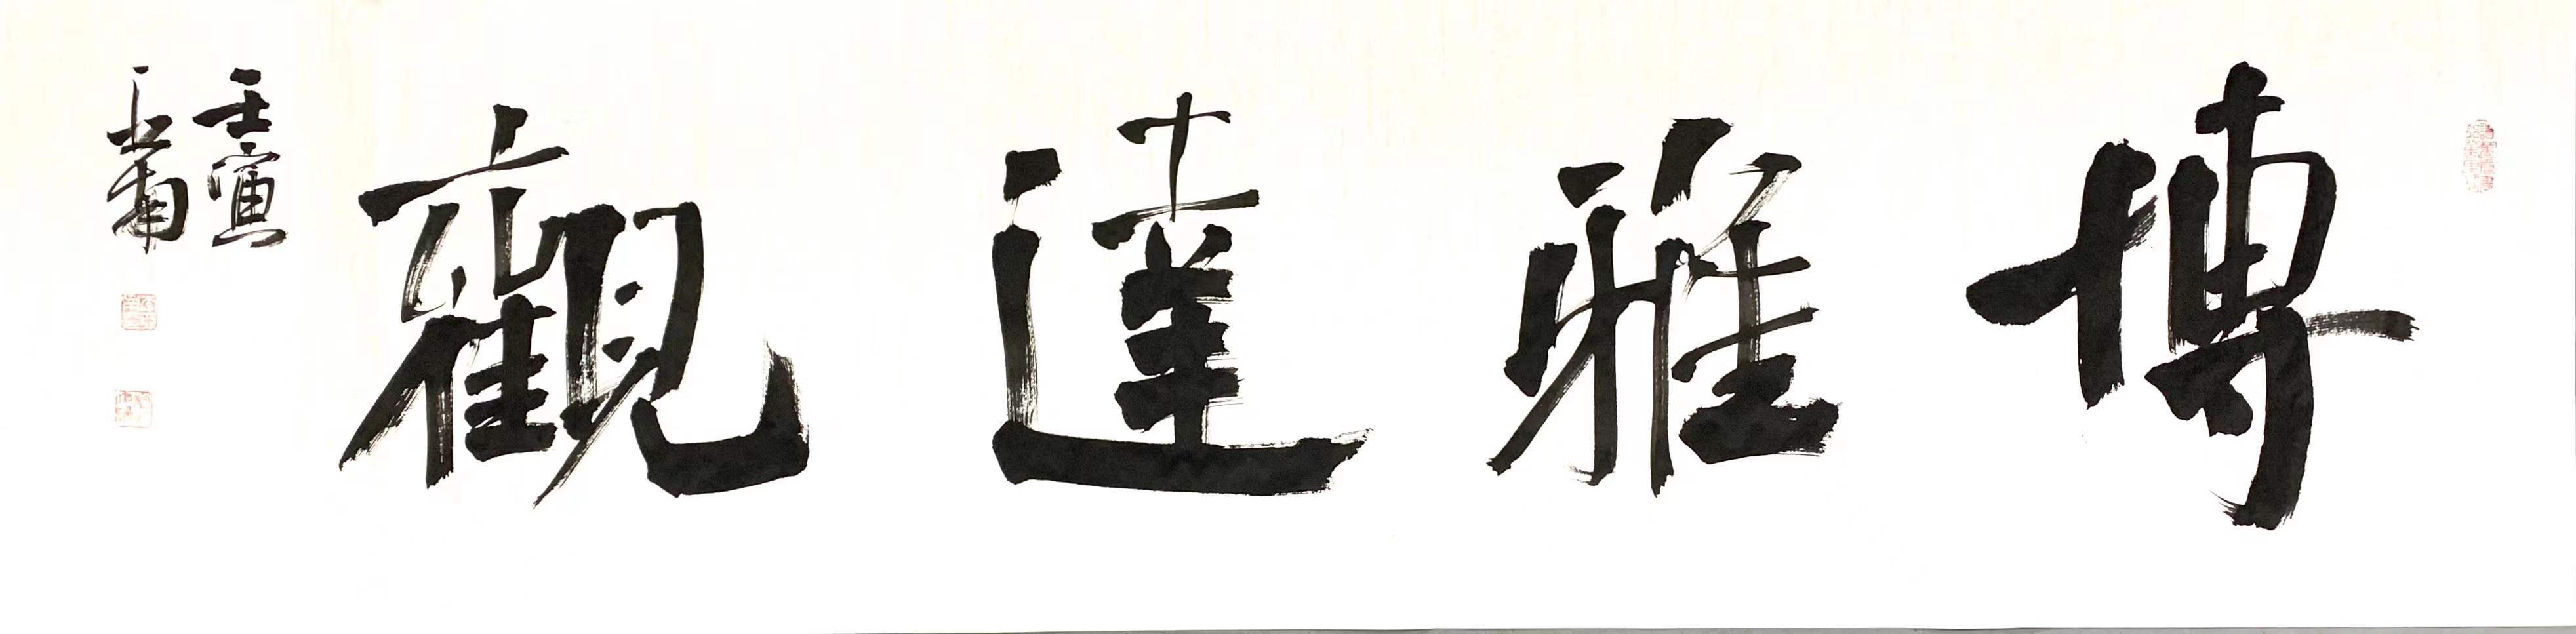 博雅達觀
壬寅